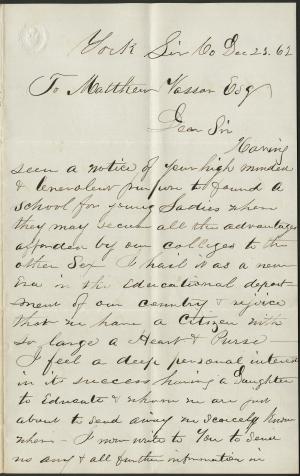 York Liv Co Dec 23. 62
To Matthew Vassar Esq
Dear Sir
Having
seen a notice of your high minded
& benevolent purpose to found a
school for young Ladies where
they may secure all the advantages
afforded by our colleges to the
other Sex I hail it as a new
Era in the Educational depart
ment of our country & rejoice
that we have a Citizen with
so large a Heart & Purse –
I feel a deep personal interest
in its success having a Daughter
to Educate & whom we are just
about to send away we scarcely know
where – I now write to You to send
me any & all further information in